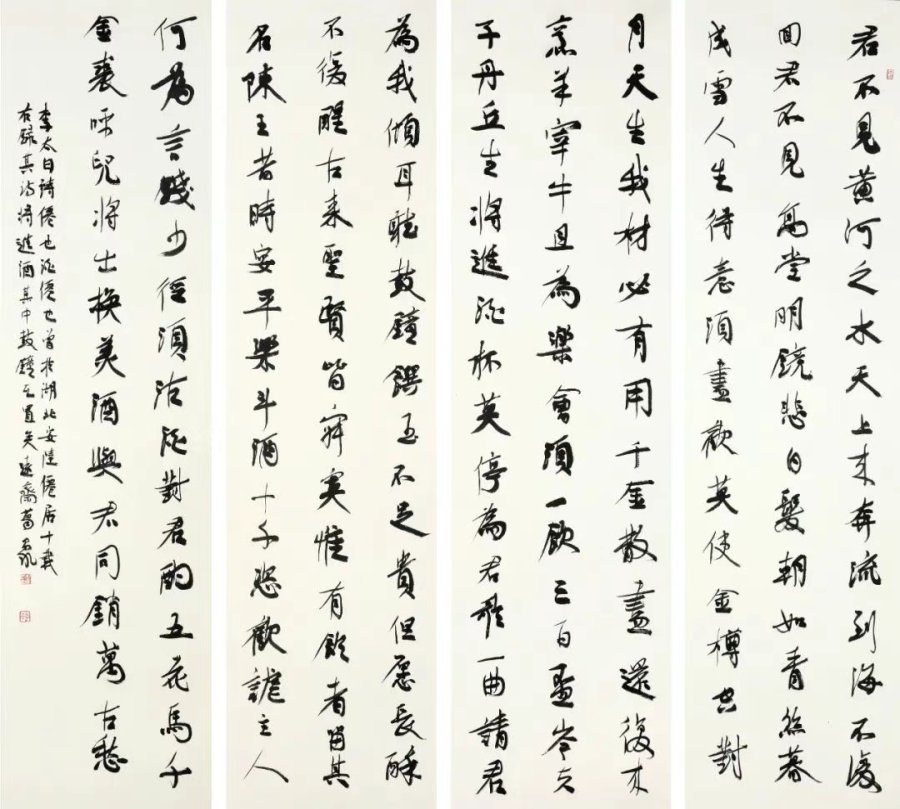 君不見黃河之水天上來奔流到海不復
回君不見高堂明鏡悲白髮朝如青絲暮
成雪人生得意須盡歡莫使金樽空對
月天生我材必有用千金散盡還復來
烹羊宰牛且為樂會須一飲三百盃岑夫
子丹丘生將進酒杯莫停為君歌一曲請君
為我傾耳聽鼓鐘饌玉不足貴但愿長醉
不復醒古來聖賢皆寂寞惟有飲者留其
名陳王昔時宴平樂斗酒十千恣歡謔主人
何為言錢少徑須沽酒對君酌五花馬千
金裘呼兒將出換美酒與君同銷萬古愁
李太白詩僊也酒僊也曾於湖北安陸僊居十載
右錄其詩將進酒其中鼓鐘